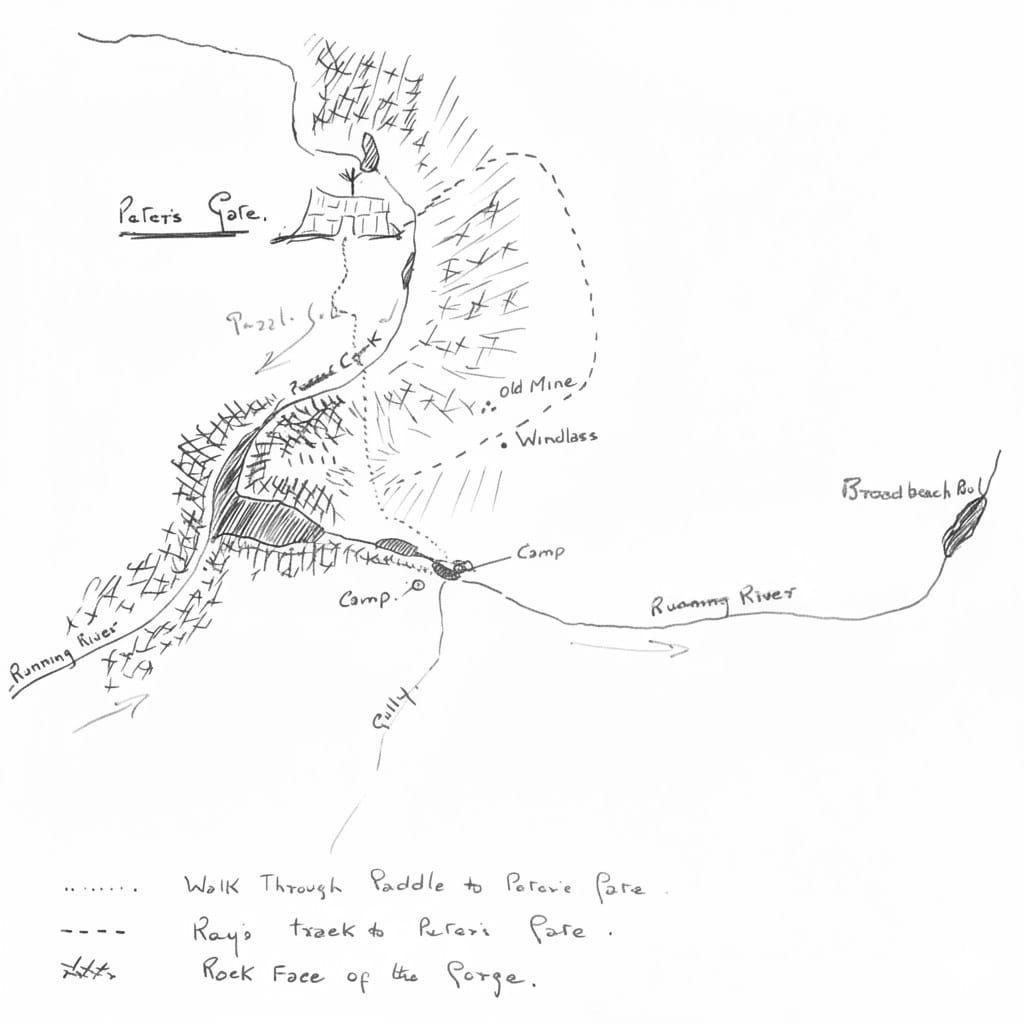 Peter's Gate.
Old Mine
Windlass
Broadbeach Pool
Camp
Camp.
Running River
Running River
Gully
Walk Through Paddle to Peter's Gate.
Ray's track to Peter's Gate.
Rock Face of the Gorge.